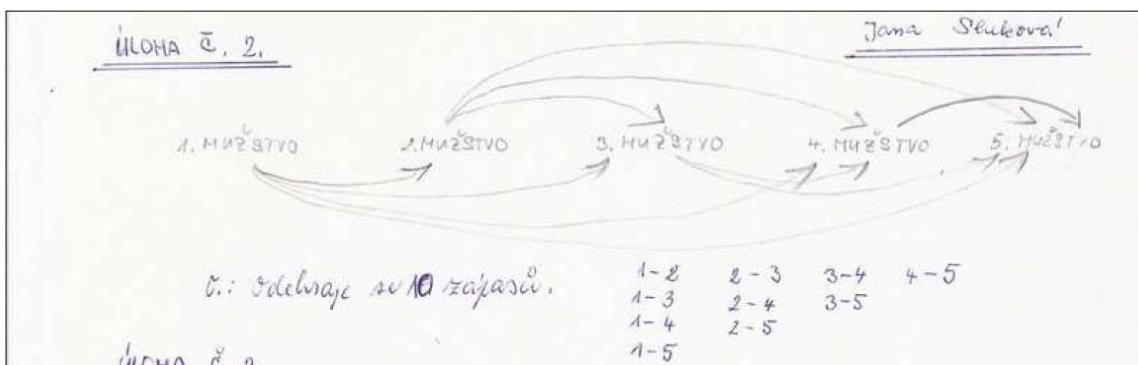 ÚLOHA Č. 2.
Jana Sluková
1. MUŽSTVO 2. MUŽSTVO 3. MUŽSTVO 4. MUŽSTVO 5. MUŽSTVO
O.: Odehraje se 10 zápasů.
1-2 2-3 3-4 4-5
1-3 2-4 3-5
1-4 2-5
1-5
ÚLOHA Č.